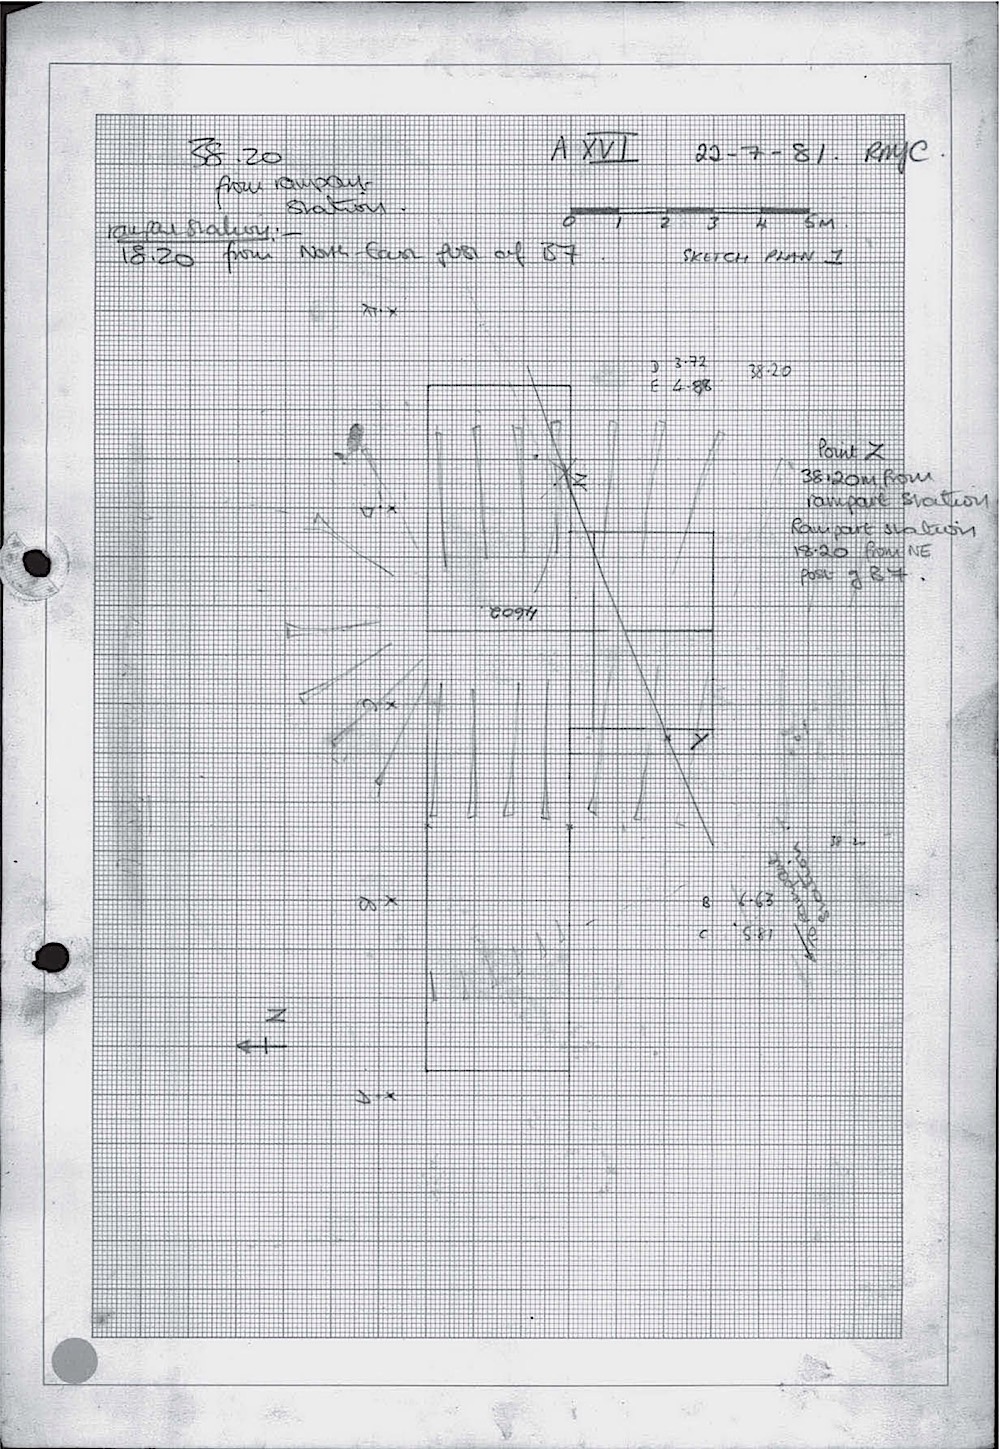 38.20
from rampart
station.
A XVI 22-7-81. RMJC.
rampart station:-
18.20 from North-East post of B7.
0 1 2 3 4 5M.
SKETCH PLAN 1
D 3.72
E 4.88
38.20
Point Z
38.20m from
rampart station
Rampart station
18.20 from NE
post of B7.
Z
D
4602
C
Y
38.20
to rampart
station
B 6.63
C 5.81
B
N
A